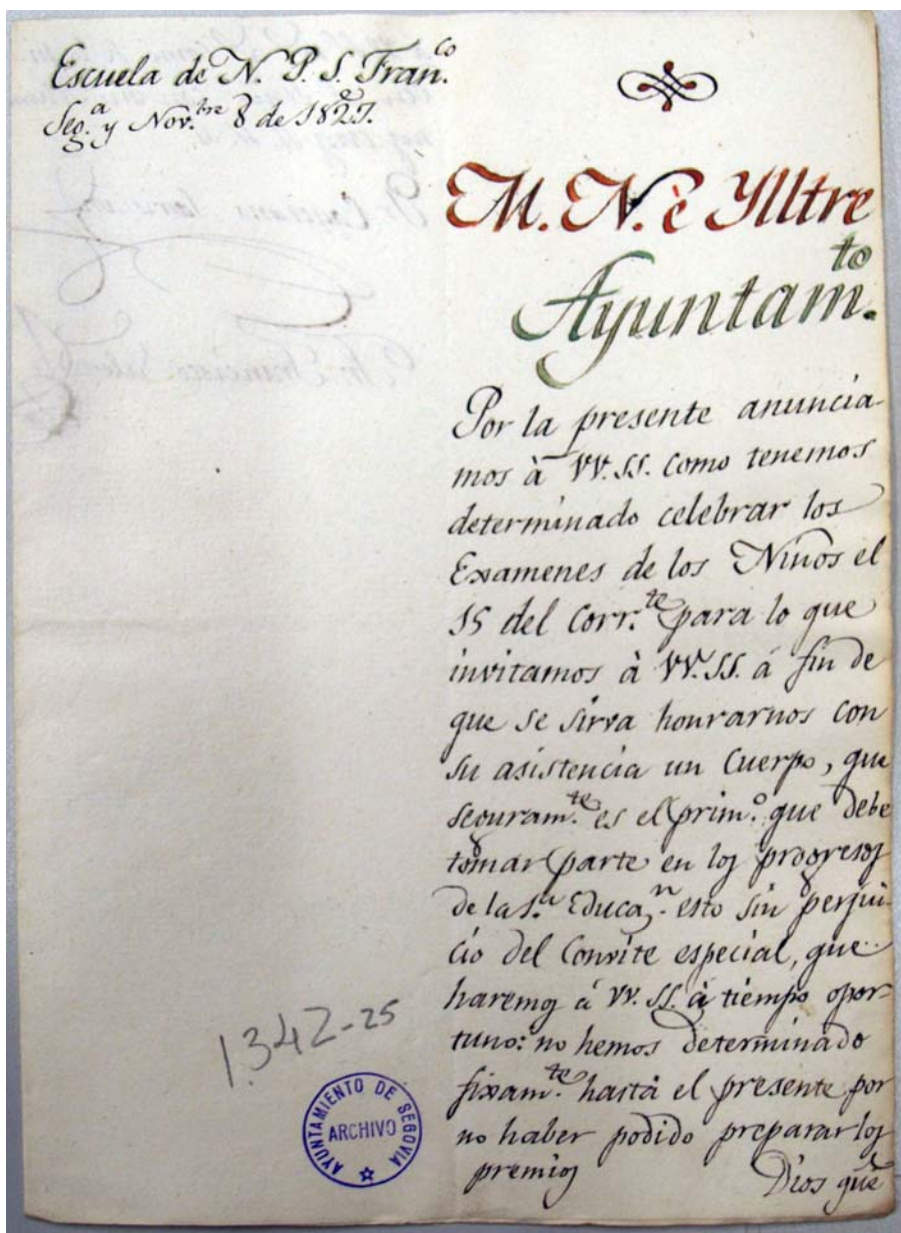 Escuela de N. P. S. Fran.co
Seg.a y Nov.bre 8 de 1827.
M. N. èYlltre
Ayuntam.to
Por la presente anuncia-
mos à VV. SS. como tenemos
determinado celebrar los
Examenes de los Niños el
15 del Corr.te para lo que
invitamos à VV. SS. á fin de
que se sirva honrarnos con
su asistencia un Cuerpo, que
seguram.te es el prim.o que debe
tomar parte en los progresos
de la Educa.n esto sin perjui-
cio del Convite especial, que
haremos á VV. SS. à tiempo opor-
tuno: no hemos determinado
fixam.te hasta el presente por
no haber podido preparar los
premios
Dios gũe
1.342-25
AYUNTAMIENTO DE SEGOVIA
ARCHIVO